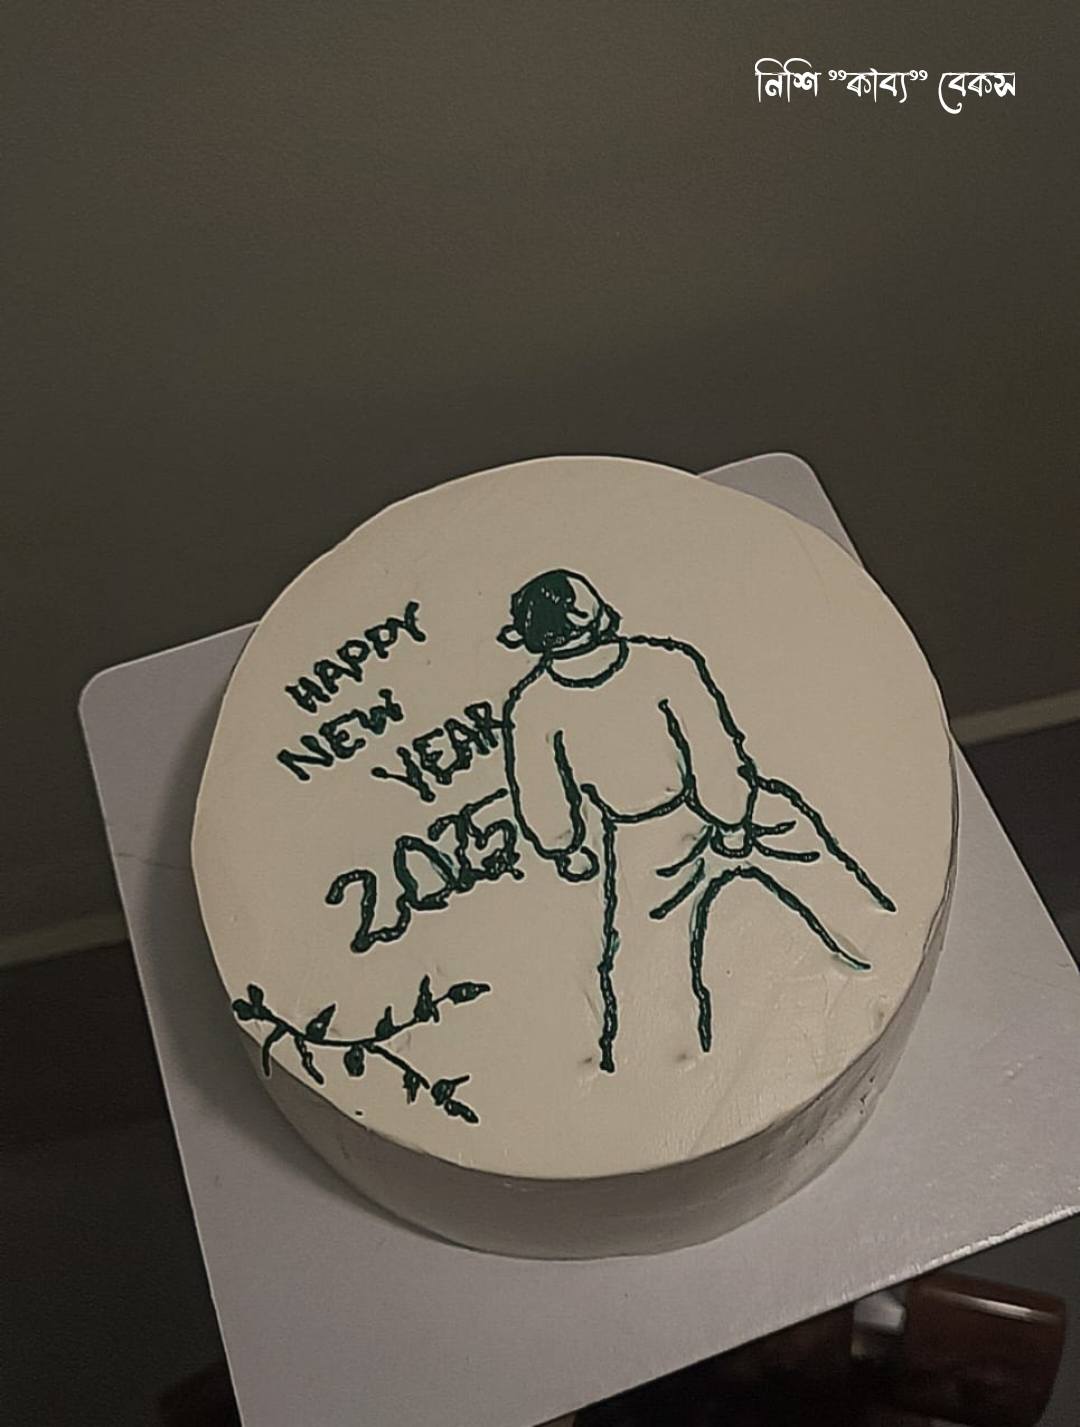 নিশি "কাব্য" বেকস
HAPPY
NEW
YEAR
2025